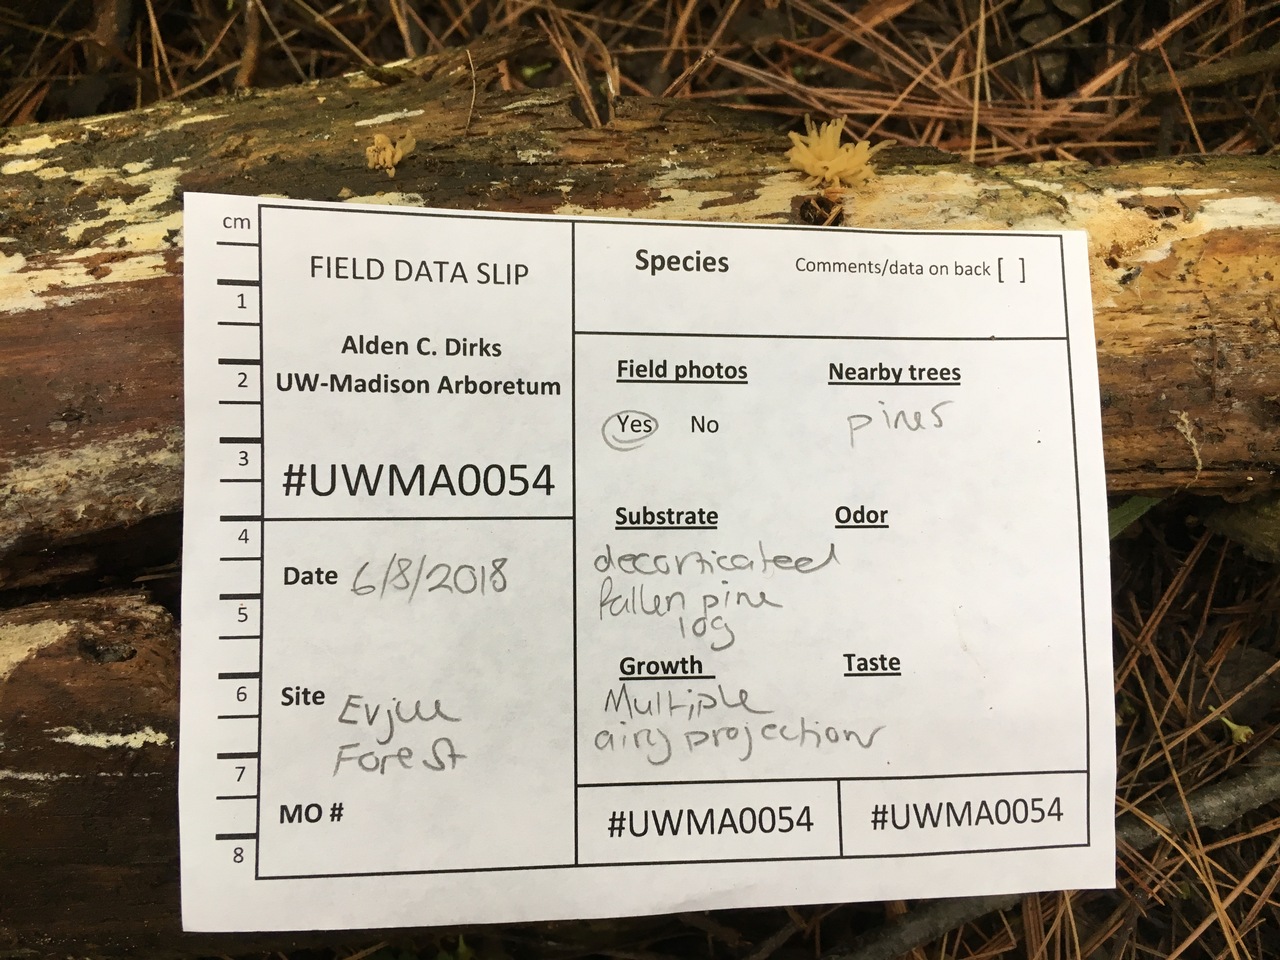 cm
1
2
3
4
5
6
7
8
FIELD DATA SLIP
Alden C. Dirks
UW-Madison Arboretum
#UWMA0054
Date 6/8/2018
Site Evjue
Forest
MO #
Species Comments/data on back [ ]
Field photos
Yes No
Nearby trees
pines
Substrate
decorticated
fallen pine
log
Odor
Growth
Multiple
airy projections
Taste
#UWMA0054
#UWMA0054